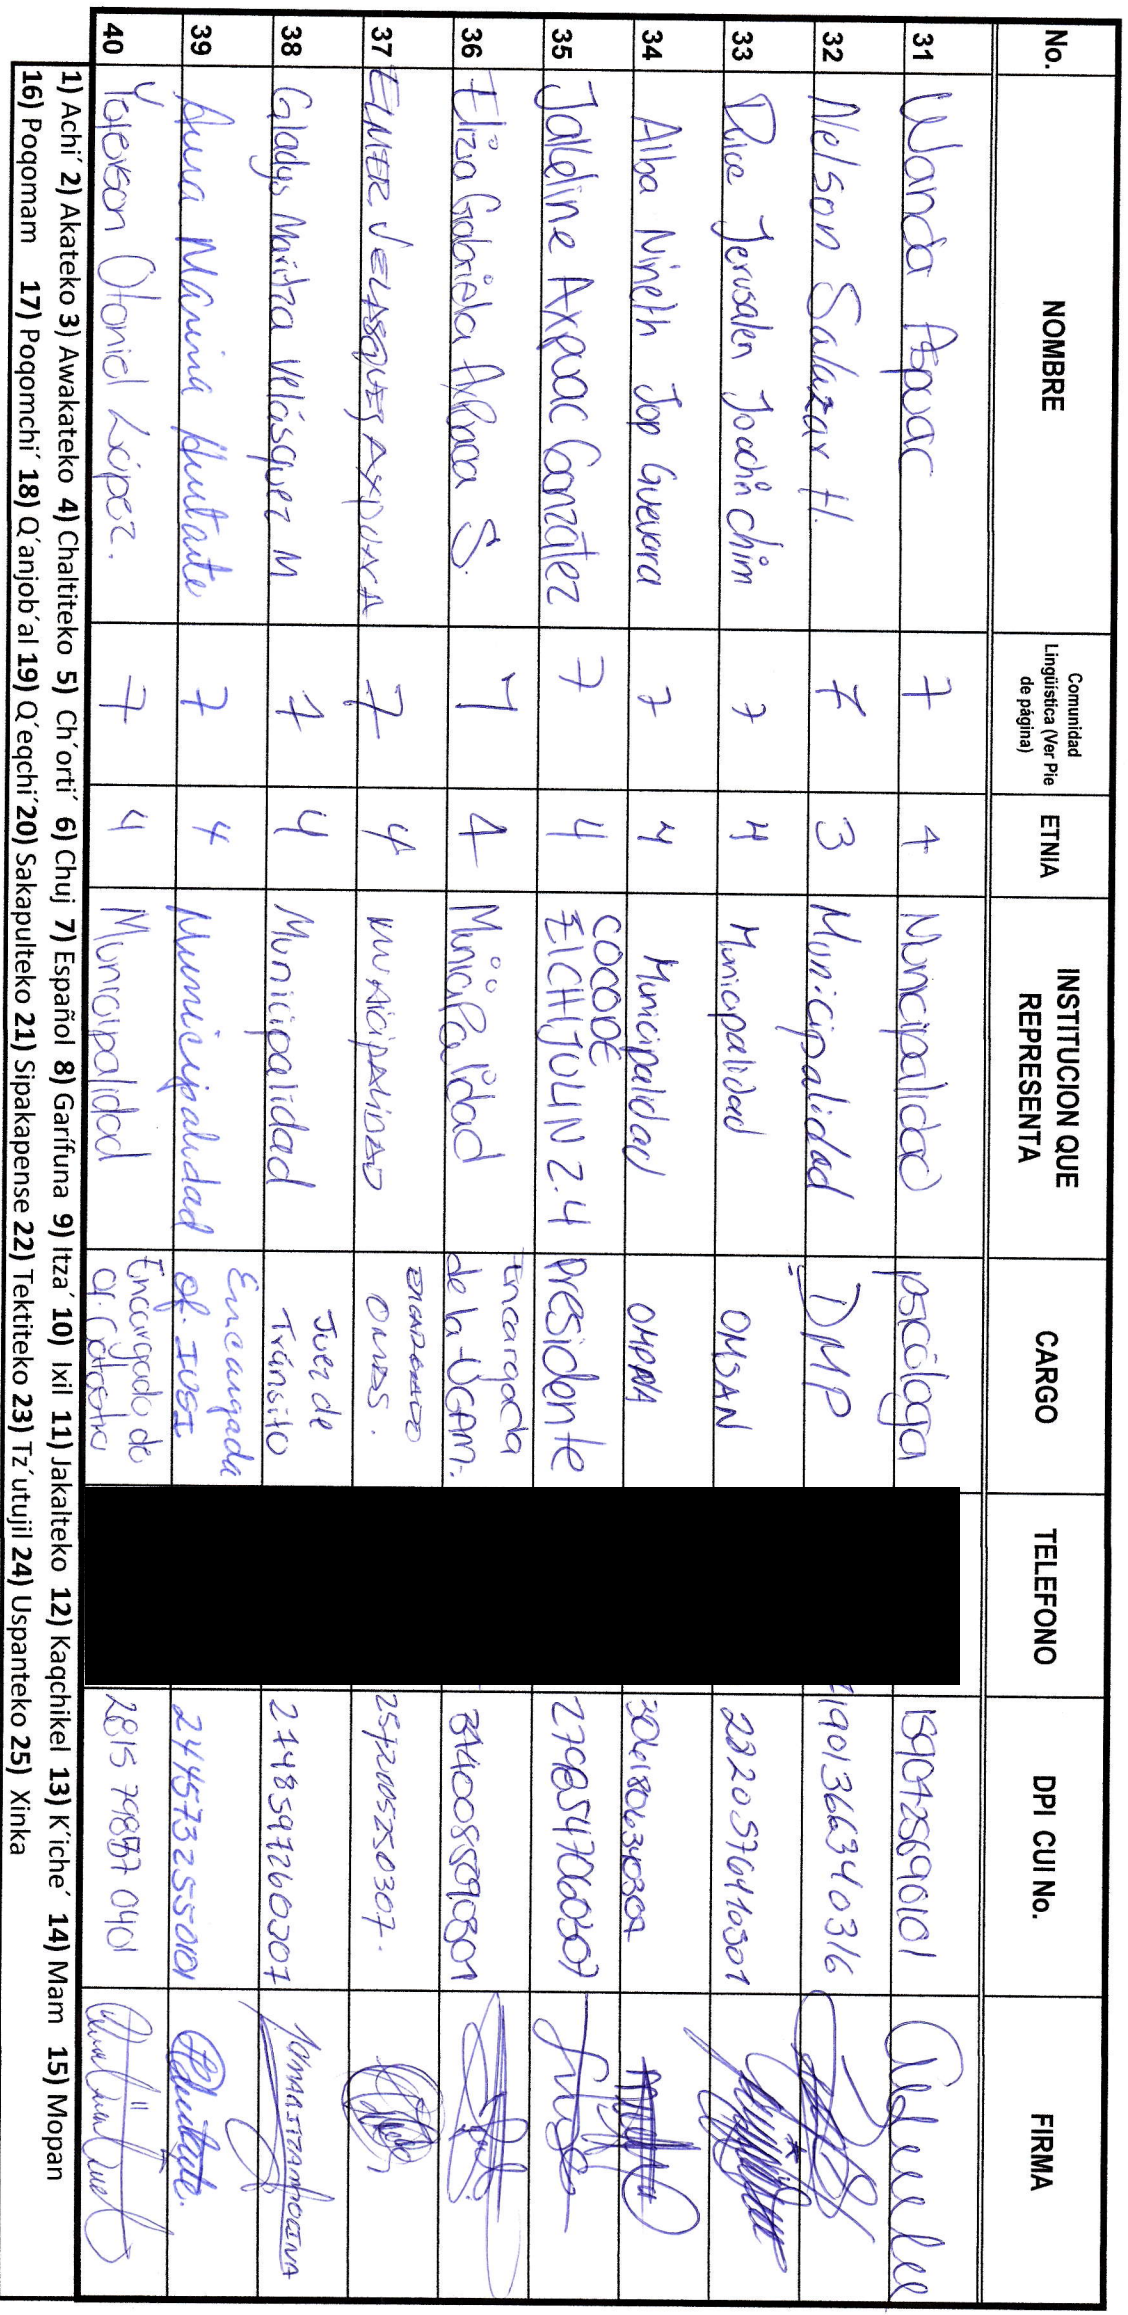 No. NOMBRE Comunidad Lingüistica (Ver Pie de página) ETNIA INSTITUCION QUE REPRESENTA CARGO TELEFONO DPI CUI No. FIRMA
31 Wanda Axpuac 7 4 Municipalidad psicóloga
32 Nelson Salazar H. 7 3 Municipalidad DMP
33 Dulce Jerusalen Joachin chim 7 4 Municipalidad OMSAN 2320576410301
34 Alba Nineth Jop Guevara 7 4 Municipalidad OMPNA
35 Jalldine Axpuac González 7 4 COCODE El CHIJULIN 2.4 Presidente
36 Eliza Gabriela Axpuac S. 7 4 Municipalidad Encargada de la UGAM.
37 ELMER VELASQUEZ AXPUACA 7 4 MUNICIPALIDAD ENCARGADO OMAS.
38 Gladys Maritza Velásquez M 7 4 Municipalidad Juez de Tránsito 2748597260307
39 Aura Marina Hurtarte 7 4 Municipalidad Encargada of. IUSI 2445732550101
40 Otoniel López. 7 4 Municipalidad Encargado de Of. Catastro
1) Achi´ 2) Akateko 3) Awakateko 4) Chaltiteko 5) Ch´orti´ 6) Chuj 7) Español 8) Garífuna 9) Itza´ 10) Ixil 11) Jakalteko 12) Kaqchikel 13) K´iche´ 14) Mam 15) Mopan
16) Poqomam 17) Poqomchi´ 18) Q´anjob´al 19) Q´eqchi´ 20) Sakapulteko 21) Sipakapense 22) Tektiteko 23) Tz´utujil 24) Uspanteko 25) Xinka